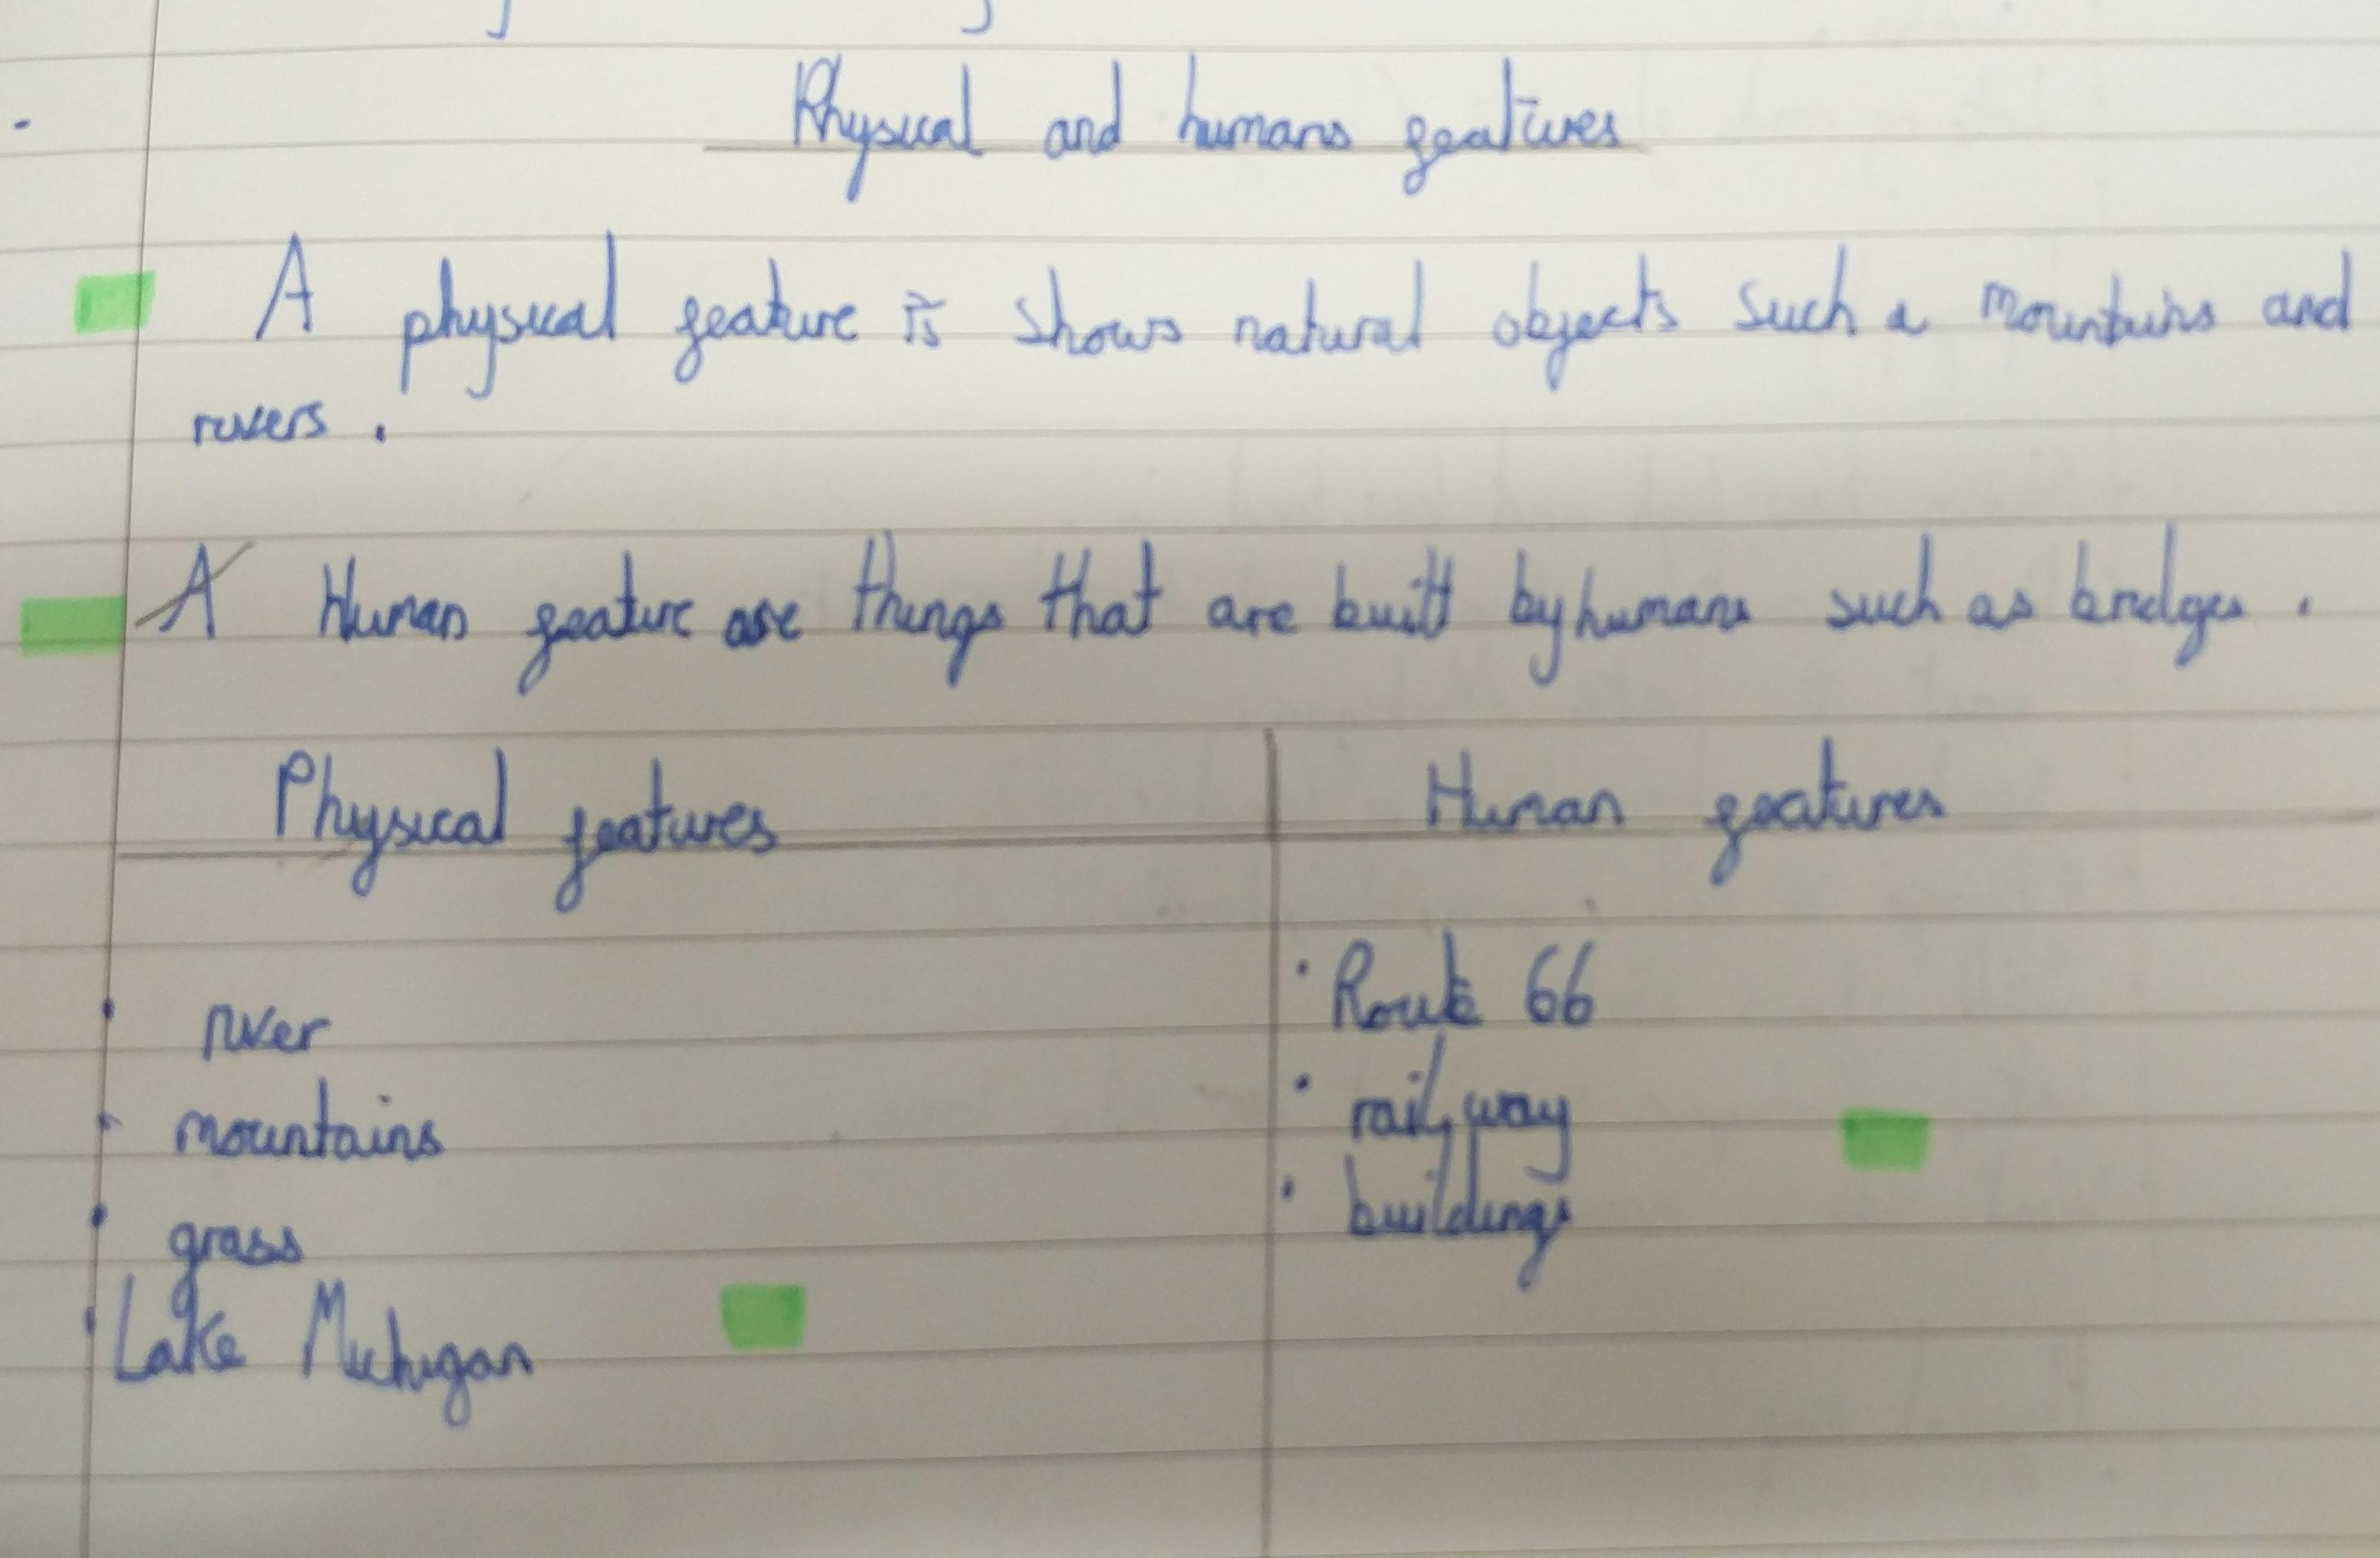 Physical and humans features
A physical feature is shows natural objects such a mountains and
rivers .
A Human feature are things that are built by humans such as bridges .
Physical features
Human features
· river
· mountains
· grass
· Lake Michigan
· Route 66
· railway
· buildings